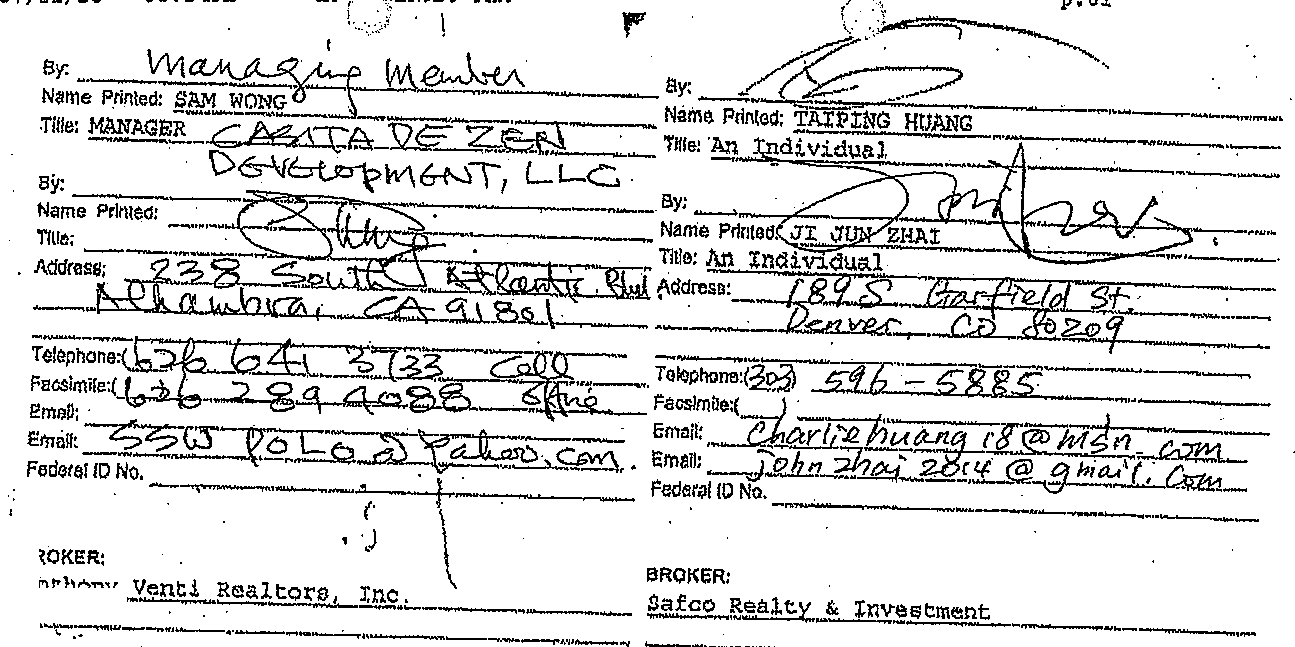 p.01
By: Managing Member
Name Printed: SAM WONG
Title: MANAGER CASITA DE ZEN
DEVELOPMENT, LLC
By:
Name Printed:
Title:
Address: 238 South Atlantic Blvd.
Alhambra, CA 91801
Telephone:(626 641 3733 Cell
Facsimile:(626 289 4088
Email:
Email: SSWPOLO@yahoo.com.
Federal ID No.
ROKER:
Venti Realtors, Inc.
By:
Name Printed: TAIPING HUANG
Title: An Individual
By:
Name Printed: JI JUN ZHAI
Title: An Individual
Address: 189 S Garfield St.
Denver, CO 80209
Telephone:(303) 596-5885
Facsimile:( )
Email: Charliehuang18@msn.com
Email: johnzhai2014@gmail.com
Federal ID No.
BROKER:
Safco Realty & Investment